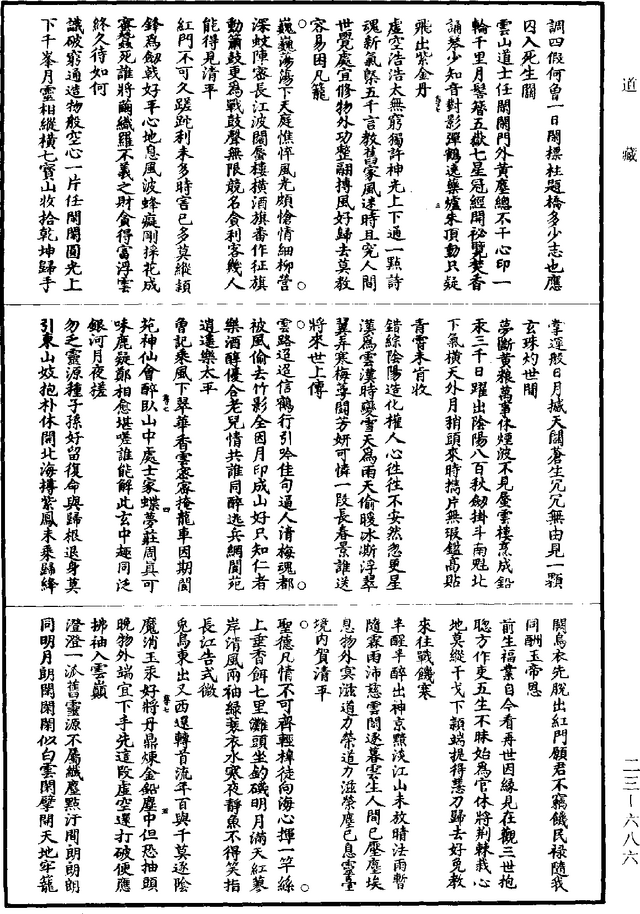 道藏
調四假何曾一日閑標柱題橋多少志也應
囚入死生關
雲山道士任閑閑門外黃塵總不干心印一
輪千里月髻簪五嶽七星冠經開祕覽焚香
誦琴少知音對影彈鶴遶藥爐朱頂動只疑
飛出紫金丹
虛空浩浩太無窮獨許神光上下通一點詩
魂新氣槩五千言教舊家風迷時且究人間
世覺處宜修物外功整翮摶風好歸去莫教
容易困凡籠
巍巍蕩蕩下天庭憔悴風光頗愴情細柳營
深蚊陣密長江波闊蜃樓橫酒旗番作征旗
動簫鼓更為戰鼓聲無限競名貪利客幾人
能得見清平
紅門不可久蹉跎利未多時害已多莫縱額
鋒為劒戟好平心地息風波蜂癡剛採花成
蜜蠶死誰將繭織羅不義之財貪得富浮雲
終久待如何
識破窮通造物般空心一片任閑閑圓光上
下千峯月靈相縱橫七寶山收拾乾坤歸手
掌運般日月撼天關蒼生冗冗無由見一顆
玄珠灼世間
夢斷黃粮萬事休煙波不見蜃雲樓烹成鉛
汞三千日躍出陰陽八百秋劒掛斗南魁北
下氣橫天外月稍頭來時擕片無瑕鑑高貼
青霄未肯收
錯綜陰陽造化權人心往往不安然忽更星
漢為雲漢時變雪天為雨天偷暖冰澌浮翠
翼弄寒梅萼鬪芳妍可憐一段長春景誰送
將來世上傳
雲路迢迢信鶴行引吟佳句逼人清梅魂都
被風偷去竹影全因月印成山好只知仁者
樂酒醇優合老兒情共誰同醉逃兵網閬苑
逍遙樂太平
曾記乘風下翠華香雲密密掩龍車因期閬
苑神仙會醉臥山中處士家蝶夢莊周真可
味鹿疑鄭相愈堪嗟誰能解此玄中趣同泛
銀河月夜槎
勿之靈源種子孫好留復命與歸根退身莫
引東山妓抱朴休開北海罇紫鳳未乘歸絳
闕烏衣先脫出紅門願君不竊饑民祿隨我
同酬玉帝恩
前生福業自今看再世因緣見在觀三世抱
聦方作吏五生不昧始為官休將荆棘栽心
地莫縱干戈下穎端提得慧刀歸去好免教
來往戰饑寒
半醒半醉出神京黯淡江山未放晴法雨暫
隨霖雨沛慈雲閑逐暮雲生人間已壓塵埃
息物外冥滋道力榮道力滋榮塵已息靈臺
境內賀清平
聖德凡情不可齊輕掉徒向海心揮一竿絲
上垂香餌七里灘頭坐釣磯明月滿天紅蓼
岸清風兩袖綠蓑衣水寒夜靜魚不得笑指
長江古式微
兔烏東出又西還轉首流年百與千莫逐陰
魔消玉汞好將丹鼎煉金鉛塵中但恐抽頭
晚物外端宜下手先這段虛空還打破便應
拂袖入雲巔
澄澄一派舊靈源不屬纖塵點汙間朗朗朗
同明月朗閑閑閑似白雲閑擘開天地牢籠
二三—六八六